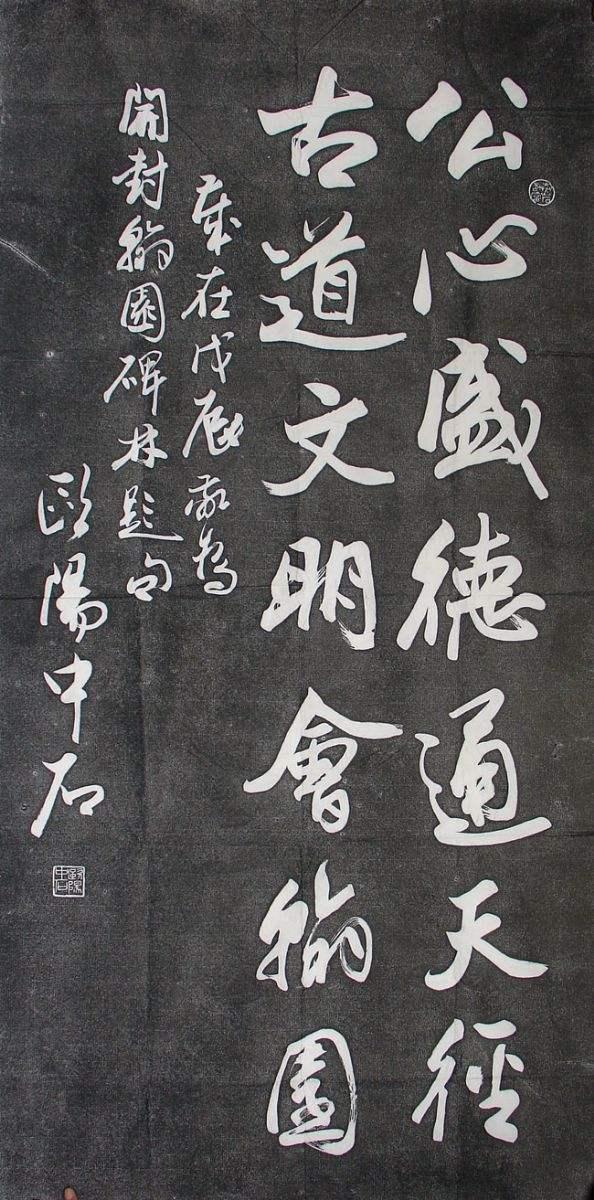 公心盛德通天徑
古道文明會翰園
歲在戊辰敬為
開封翰園碑林題句
歐陽中石
歐陽中石